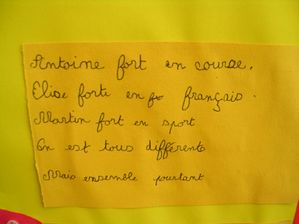 Antoine fort en course.
Elise forte en français.
Martin fort en sport
On est tous différents
Mais ensemble pourtant